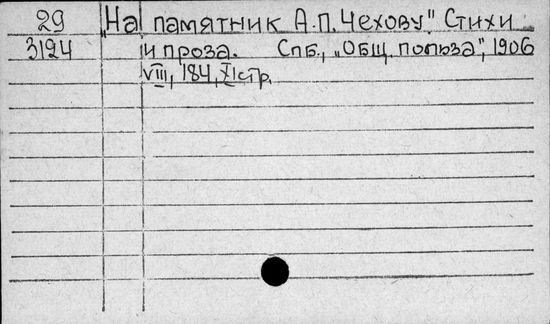 29 „На памятник А.П.Чехову" Стихи
3194 и проза. Спб., „Общ. польза", 1906
VIII, 184, XI стр.